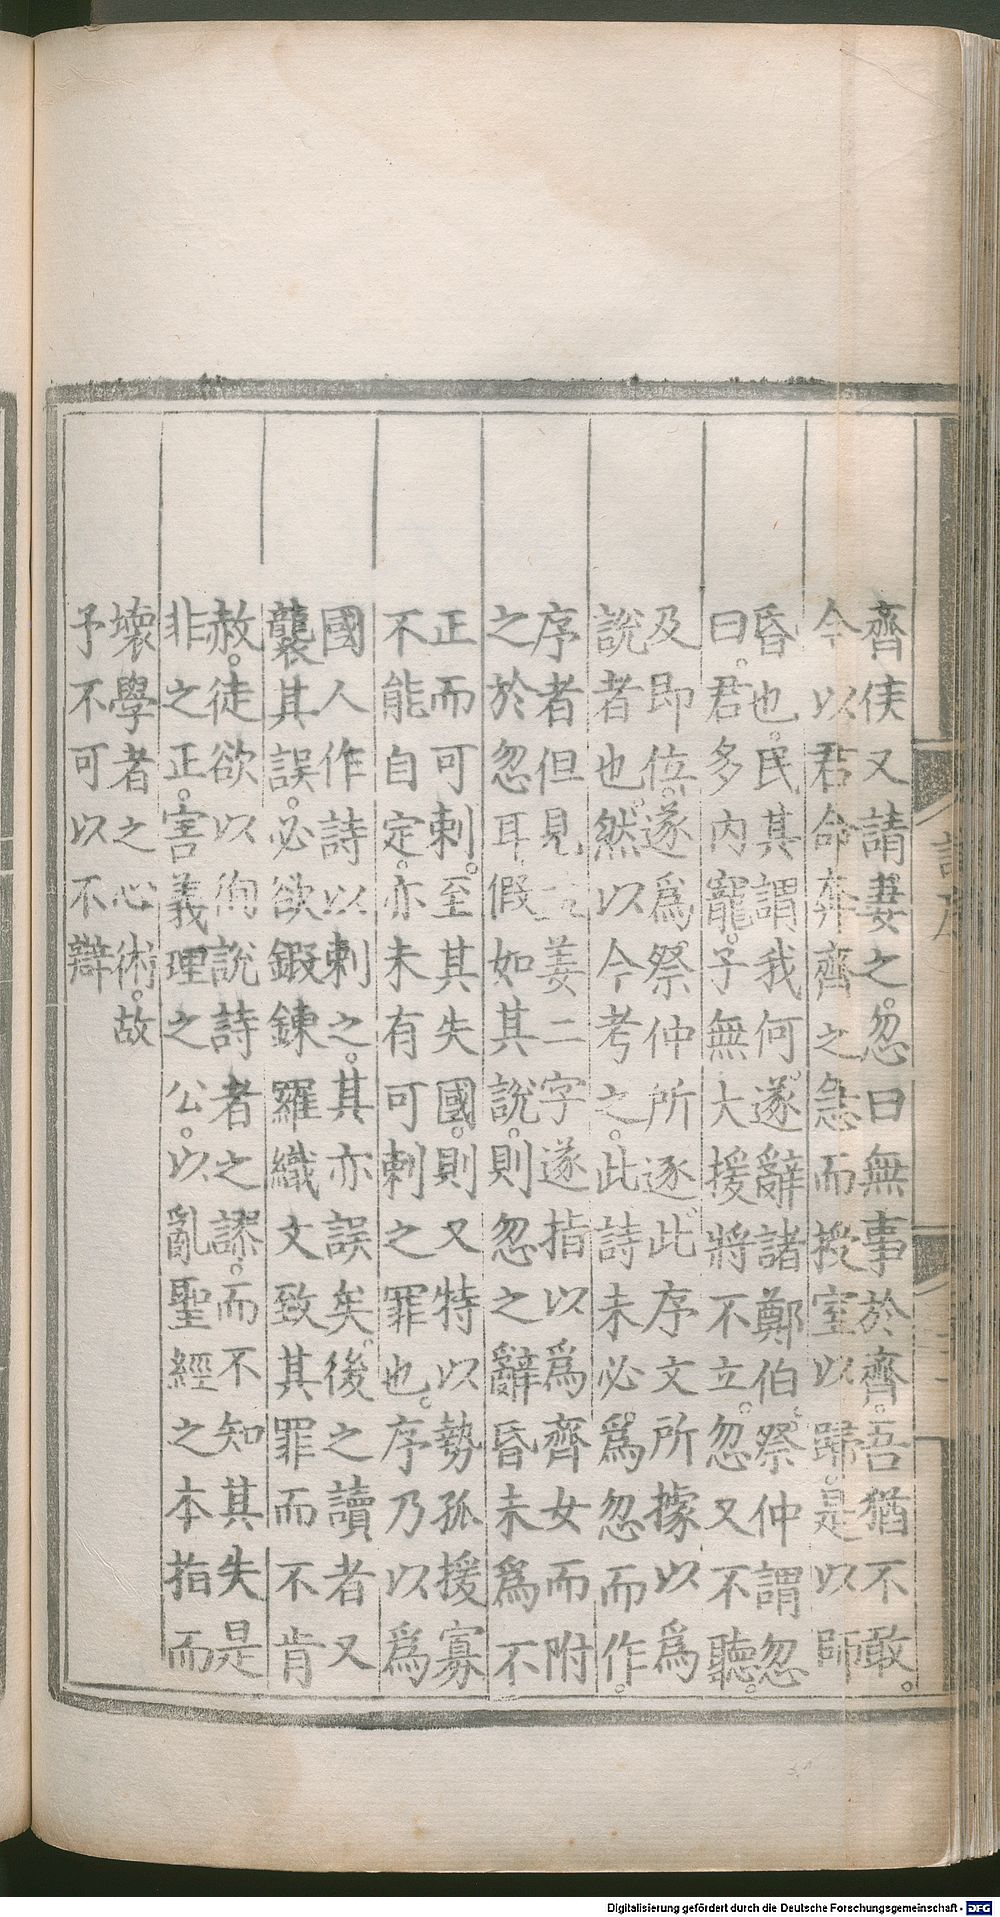 齊侯又請妻之。忽曰無事於齊。吾猶不敢。
今以君命奔齊之急而授室以歸。是以師
昏也。民其謂我何。遂辭諸鄭伯。祭仲謂忽
曰。君多內寵。子無大援將不立。忽又不聽。
及即位。遂爲祭仲所逐。此序文所據以爲
說者也。然以今考之。此詩未必爲忽而作。
序者但見姜二字遂指以爲齊女而附
之於忽耳。假如其說。則忽之辭昏未爲不
正而可刺。至其失國。則又特以勢孤援寡
不能自定。亦未有可刺之罪也。序乃以爲
國人作詩以刺之。其亦誤矣。後之讀者又
襲其誤。必欲鍛鍊羅織文致其罪而不肯
赦。徒欲以徇說詩者之謬。而不知其失是
非之正。害義理之公。以亂聖經之本指而
壞學者之心術。故
予不可以不辯
Digitalisierung gefördert durch die Deutsche Forschungsgemeinschaft - DFG